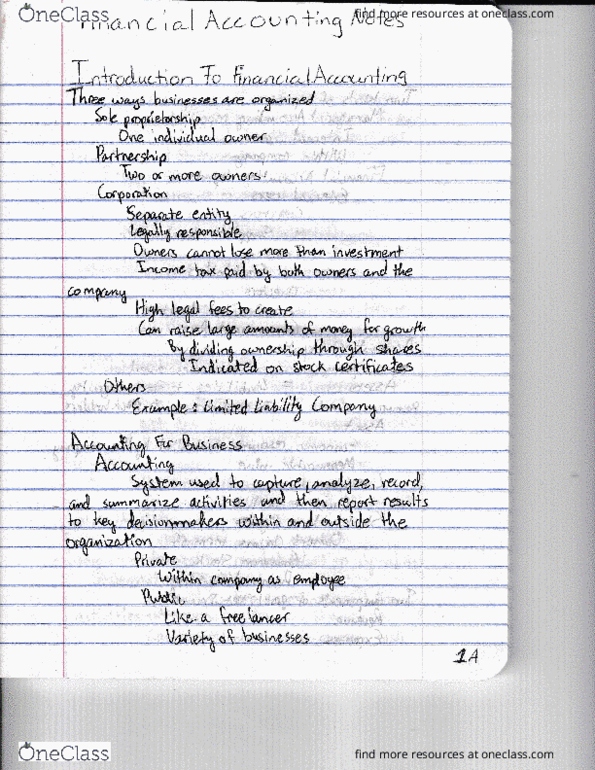 OneClass
find more resources at oneclass.com
Financial Accounting Notes
Introduction To Financial Accounting
Three ways businesses are organized
Sole proprietorship
One individual owner
Partnership
Two or more owners
Corporation
Separate entity
Legally responsible
Owners cannot lose more than investment
Income tax paid by both owners and the
company
High legal fees to create
Can raise large amounts of money for growth
By dividing ownership through shares
Indicated on stock certificates
Others
Example: Limited Liability Company
Accounting For Business
Accounting
System used to capture, analyze, record,
and summarize activities and then report results
to key decisionmakers within and outside the
organization
Private
Within company as employee
Public
Like a freelancer
Variety of businesses
1A
OneClass
find more resources at oneclass.com